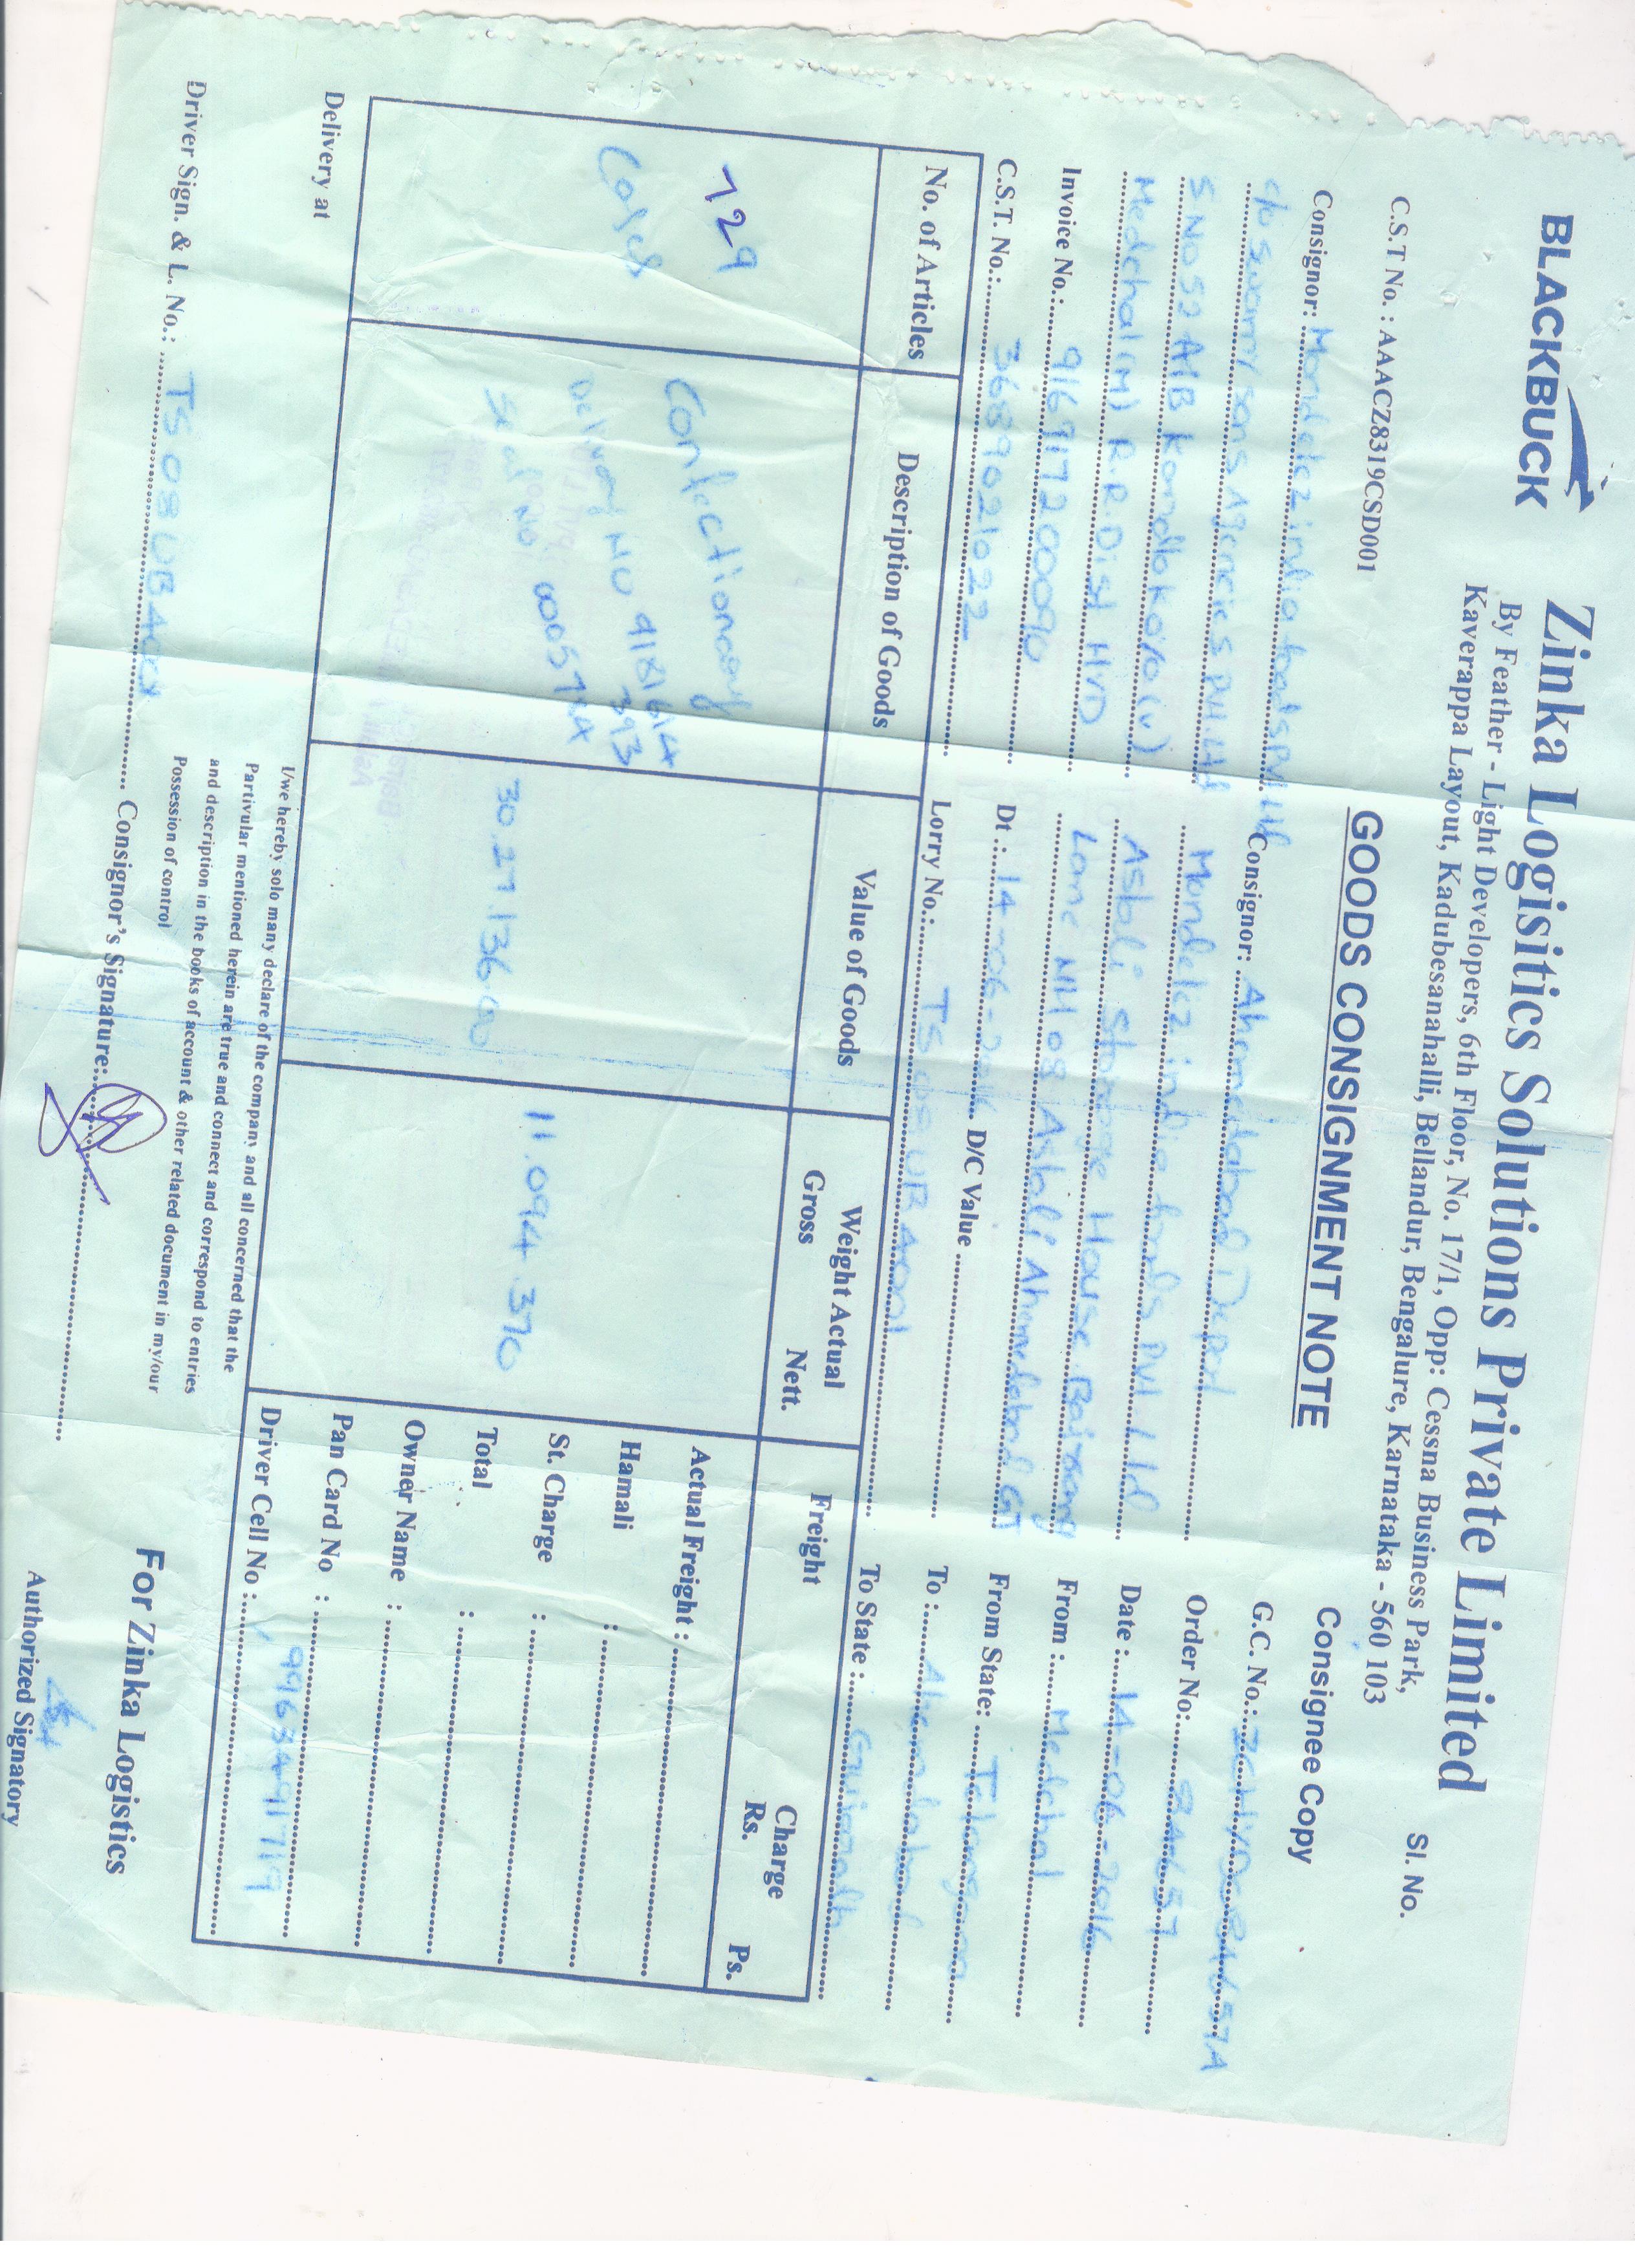 BLACKBUCK
Zinka Logisitics Solutions Private Limited
By Feather - Light Developers, 6th Floor, No. 17/1, Opp: Cessna Business Park,
Kaverappa Layout, Kadubesanahalli, Bellandur, Bengalure, Karnataka - 560 103
Sl. No.
C.S.T No. : AAACZ8319CSD001
GOODS CONSIGNMENT NOTE
Consignee Copy
Consignor: Mondelez india foods Pvt Ltd
c/o Swamy Sons Agencies Pvt. Ltd
S No 52 A1B Kandlakoya (v)
Medchal (M) R.R. Dist HYD
Invoice No.: 916917200090
C.S.T. No.: 36890021022
Consignor: Ahemdabad Depot
Mondelez india foods Pvt Ltd
Aslali Storage House, Bairang
Lane NH 08 Aslali Ahemdabad GJ
Dt.: 14-06-2016 D/C Value
Lorry No.: TS 08 UB 4001
G.C. No.:
Order No: 84657
Date : 14-06-2016
From : Medchal
From State: Telangana
To : Ahemdabad
To State : Gujarath
No. of Articles
Description of Goods
Value of Goods
Weight Actual
Gross Nett.
Freight
Charge
Rs. Ps.
729
Cases
Confectionary
Delivery NO 9181614
393
Seal No 005734
30.27.136.00
11.094.370
Actual Freight :
Hamali :
St. Charge :
Total :
Owner Name :
Pan Card No :
Driver Cell No : 9963491719
Delivery at
I/we hereby solo many declare of the company and all concerned that the
Partivular mentioned herein are true and connect and correspond to entries
and description in the books of account & other related document in my/our
Possession of control
Driver Sign. & L. No.: TS 08 UB 4001
Consignor's Signature:
For Zinka Logistics
Authorized Signatory